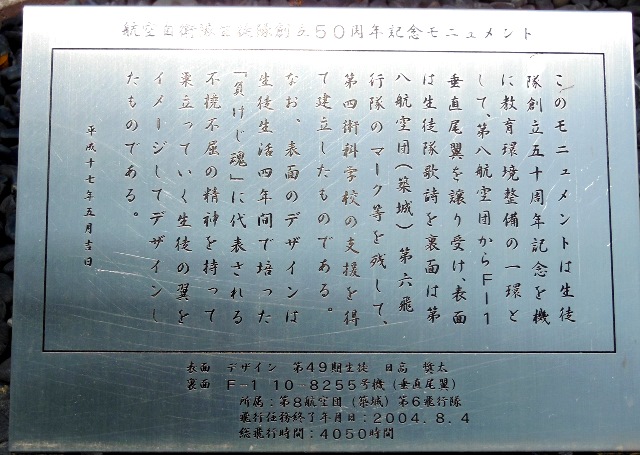 航空自衛隊生徒隊創立50周年記念モニュメント
このモニュメントは生徒
隊創立五十周年記念を機
に教育環境整備の一環と
して、第八航空団からF-1
垂直尾翼を譲り受け、表面
は生徒隊歌詩を裏面は第
八航空団(築城)第六飛
行隊のマーク等を残して、
第四術科学校の支援を得
て建立したものである。
なお、表面のデザインは
生徒生活四年間で培った
「負けじ魂」に代表される
不撓不屈の精神を持って
巣立っていく生徒の翼を
イメージしてデザインし
たものである。
平成十七年五月吉日
表面 デザイン 第49期生徒 日高 太
裏面 F-1 10-8255号機(垂直尾翼)
所属:第8航空団(築城)第6飛行隊
飛行任務終了年月日:2004.8.4
総飛行時間:4050時間